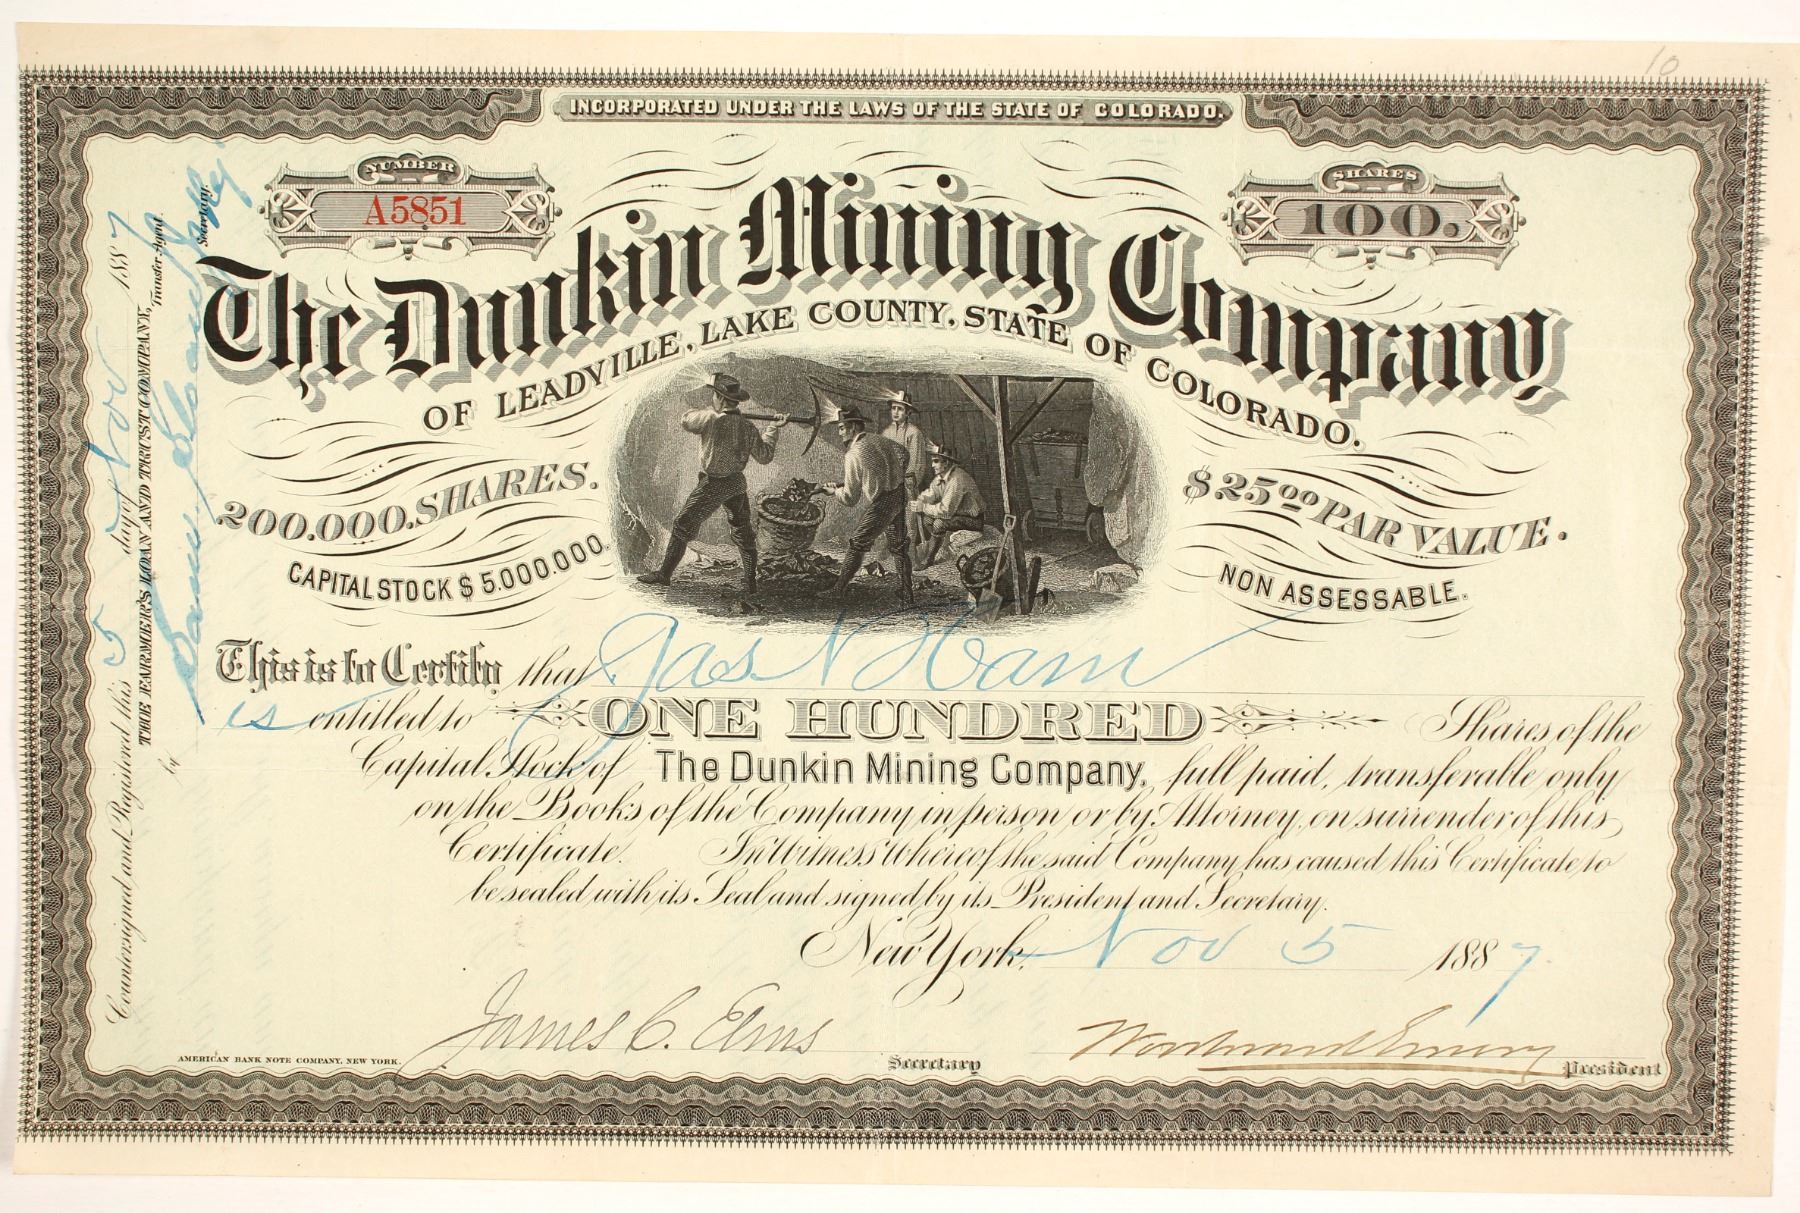 10
INCORPORATED UNDER THE LAWS OF THE STATE OF COLORADO.
NUMBER
A5851
SHARES
100.
The Dunkin Mining Company
OF LEADVILLE, LAKE COUNTY, STATE OF COLORADO.
200.000. SHARES.
$.25.00 PAR VALUE.
CAPITAL STOCK $ 5.000.000.
NON ASSESSABLE.
This is to Certify that Jas N Ham
is entitled to ONE HUNDRED Shares of the
Capital Stock of The Dunkin Mining Company, full paid, transferable only
on the Books of the Company in person or by Attorney, on surrender of this
Certificate. In Witness Whereof the said Company has caused this Certificate to
be sealed with its Seal and signed by its President and Secretary.
New York, Nov 5 1887
James C. Elms
Secretary
President
AMERICAN BANK NOTE COMPANY, NEW YORK.
Countersigned and Registered this 5 day of Nov 1887
THE FARMER'S LOAN AND TRUST COMPANY,
Transfer Agent.
by
Secretary.